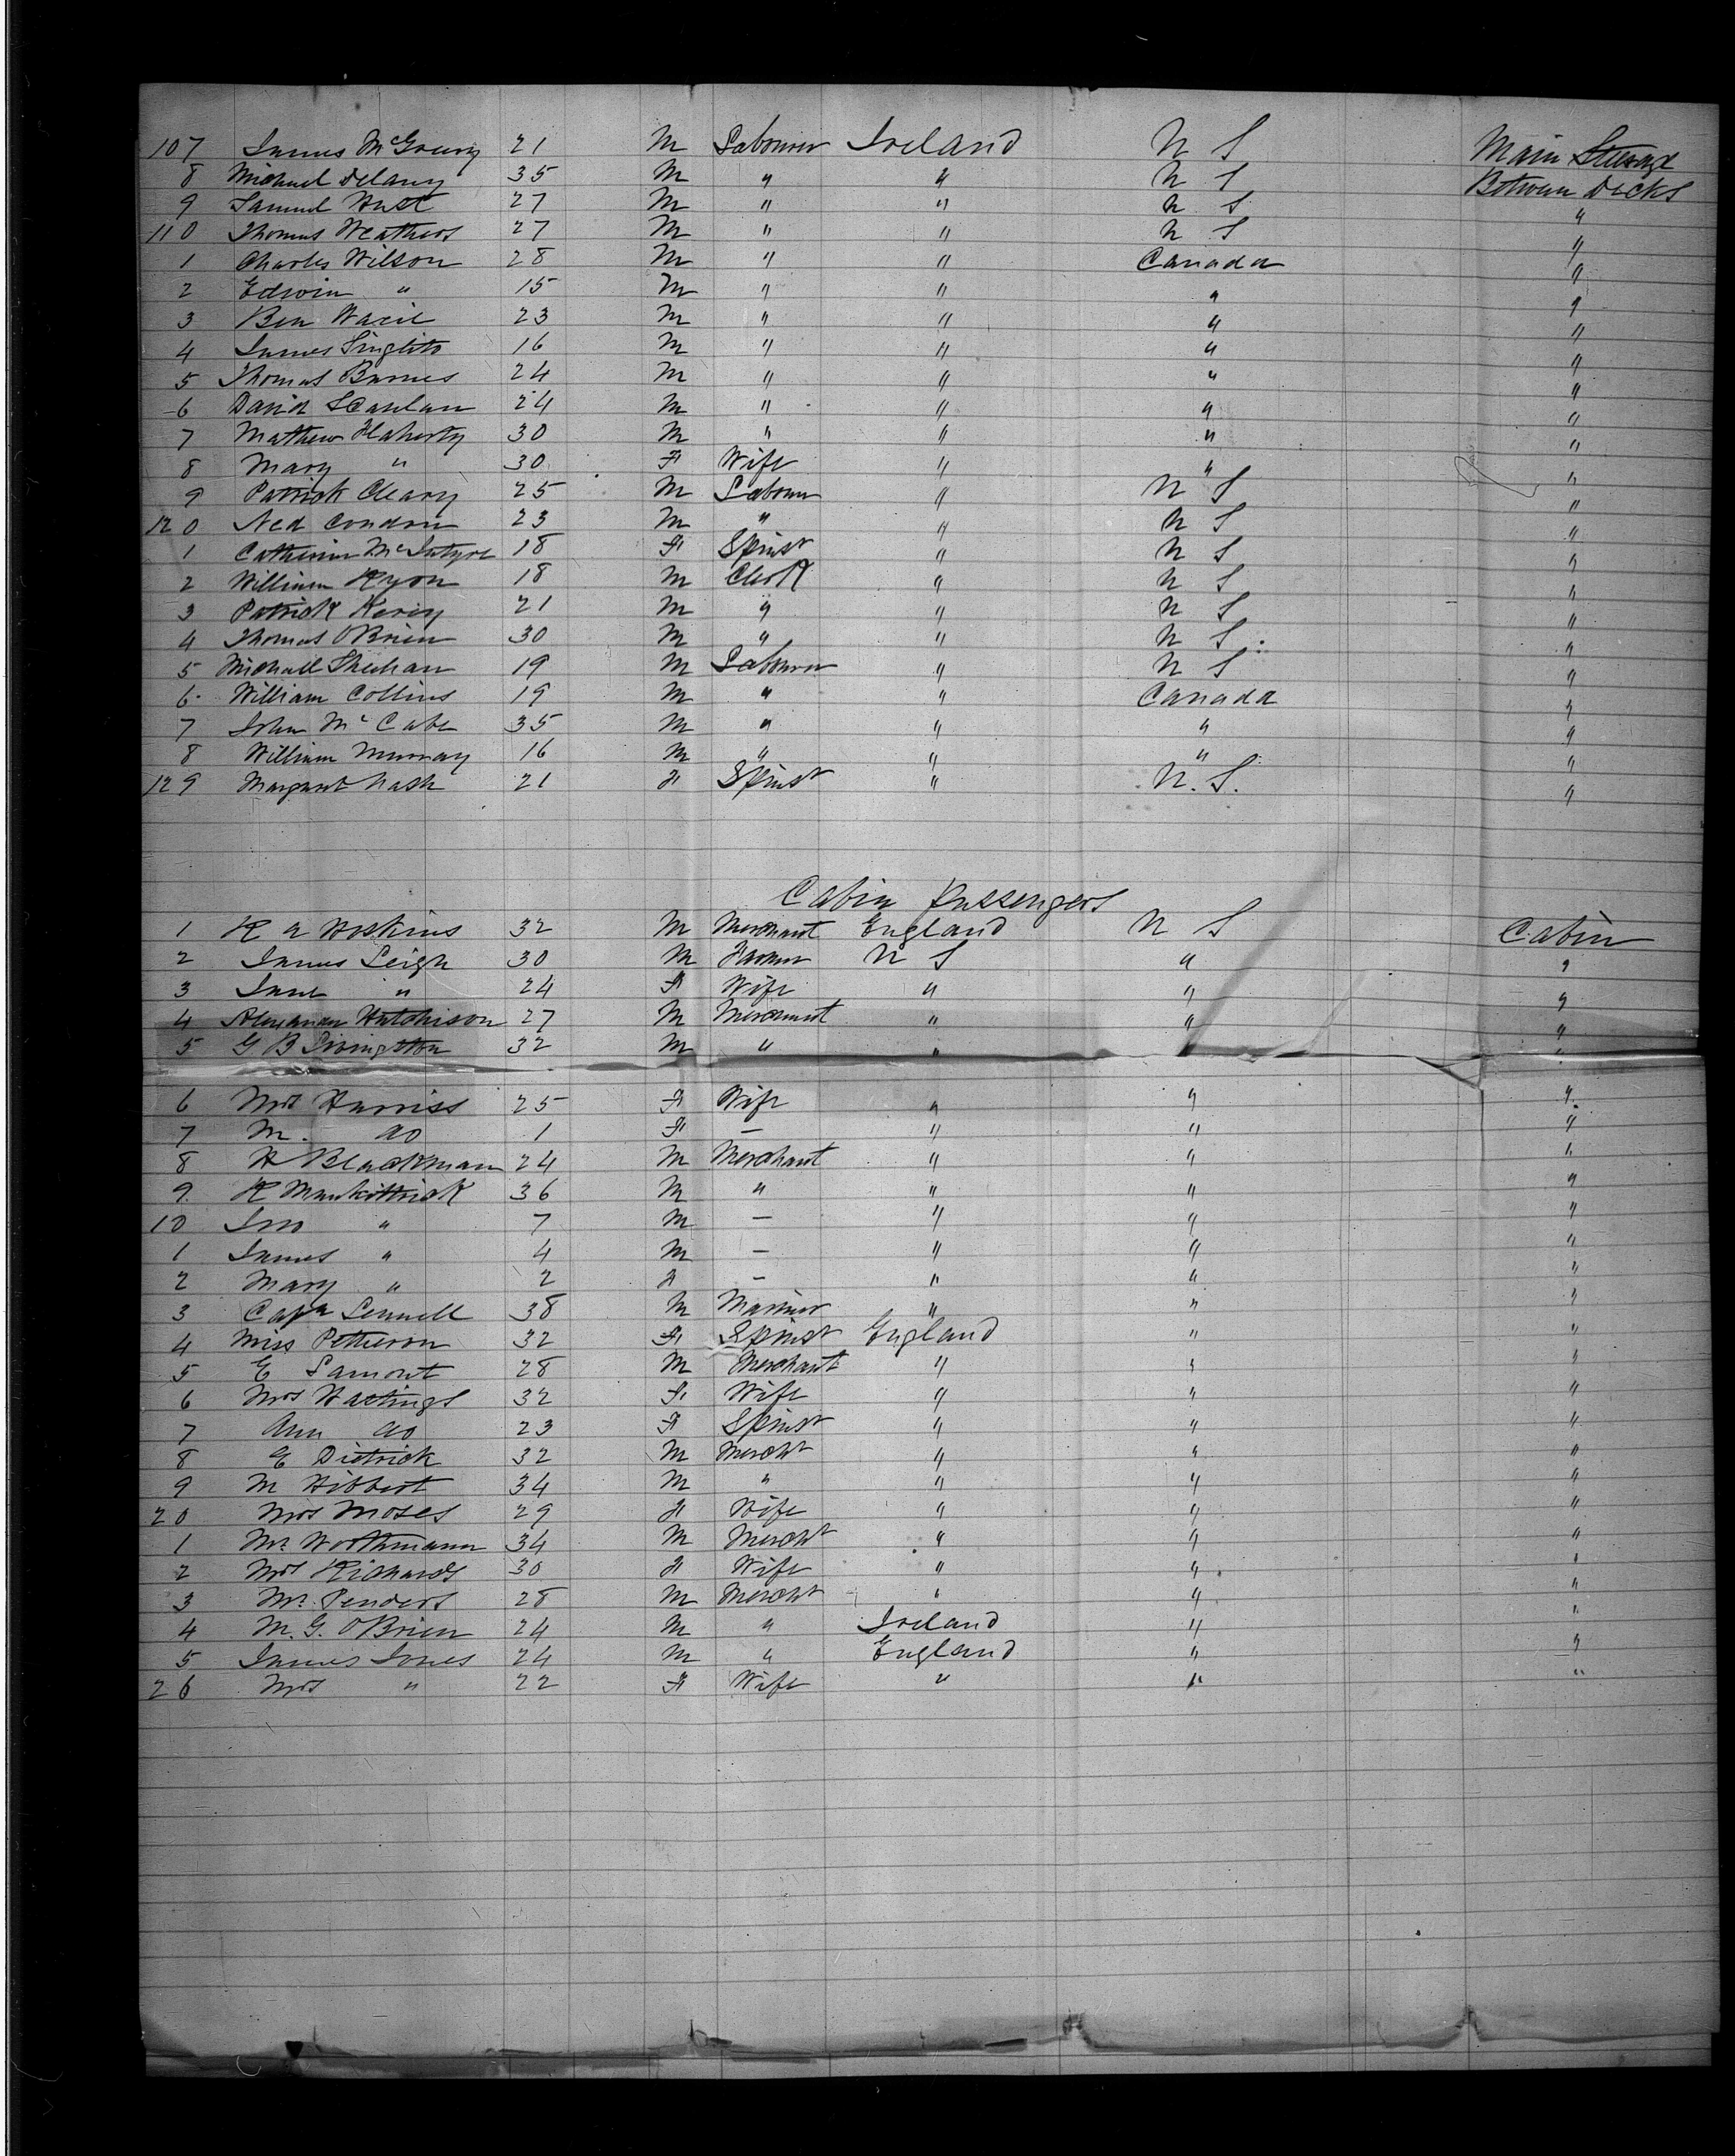 107 James McGourg 21 M Labourer Ireland U S Main Steerage
8 Michael Delany 35 M " " U S Between Decks
9 Samuel Hust 27 M " " U S "
110 Thomas Weathers 27 M " " U S "
1 Charles Wilson 28 M " " Canada "
2 Edwin " 15 M " " " "
3 Ben 23 M " " " "
4 James Singleto 16 M " " " "
5 Thomas Barnes 24 M " " " "
6 David Scanlan 24 M " " " "
7 Mathew Flaherty 30 M " " " "
8 Mary " 30 F Wife " " "
9 Patrick Cleary 25 M Labour " U S "
120 Ned Condon 23 M " " U S "
1 Catherine McIntyre 18 F Spinst " U S "
2 William Ryon 18 M Clerk " U S "
3 Patrick 21 M " " U S "
4 Thomas OBrien 30 M " " U S "
5 Michall Sheehan 19 M Labourer " U S "
6 William Collins 19 M " " Canada "
7 John McCabe 35 M " " " "
8 William Murray 16 M " " " "
129 Margaret Nash 21 F Spinst " U. S. "
Cabin Passengers
1 R A Hoskins 32 M Merchant England U S Cabin
2 James Leigh 30 M Farmer U S " "
3 Jane " 24 F Wife " " "
4 Alexander Hutchison 27 M Merchant " " "
5 G B Livingston 32 M " " " "
6 Mrs Harriss 25 F Wife " " "
7 M. do 1 F — " " "
8 H Blackman 24 M Merchant " " "
9 R Mankittrick 36 M " " " "
10 Jno " 7 M — " " "
1 James " 4 M — " " "
2 Mary " 2 F — " " "
3 Capn Lennell 38 M Mariner " " "
4 Miss Petterson 32 F Spinst England " "
5 E Lamont 28 M Merchant " " "
6 Mrs Hastings 32 F Wife " " "
7 Ann do 23 F Spinst " " "
8 E Dietrick 32 M Mercht " " "
9 M Hibbert 34 M " " " "
20 Mrs Moses 29 F Wife " " "
1 Mr. Worthmann 34 M Mercht " " "
2 Mrs Richards 30 F Wife " " "
3 Mr. Penders 28 M Mercht " " "
4 M. G. OBrien 24 M " Ireland " "
5 James Jones 24 M " England " "
26 Mrs " 22 F Wife " " "